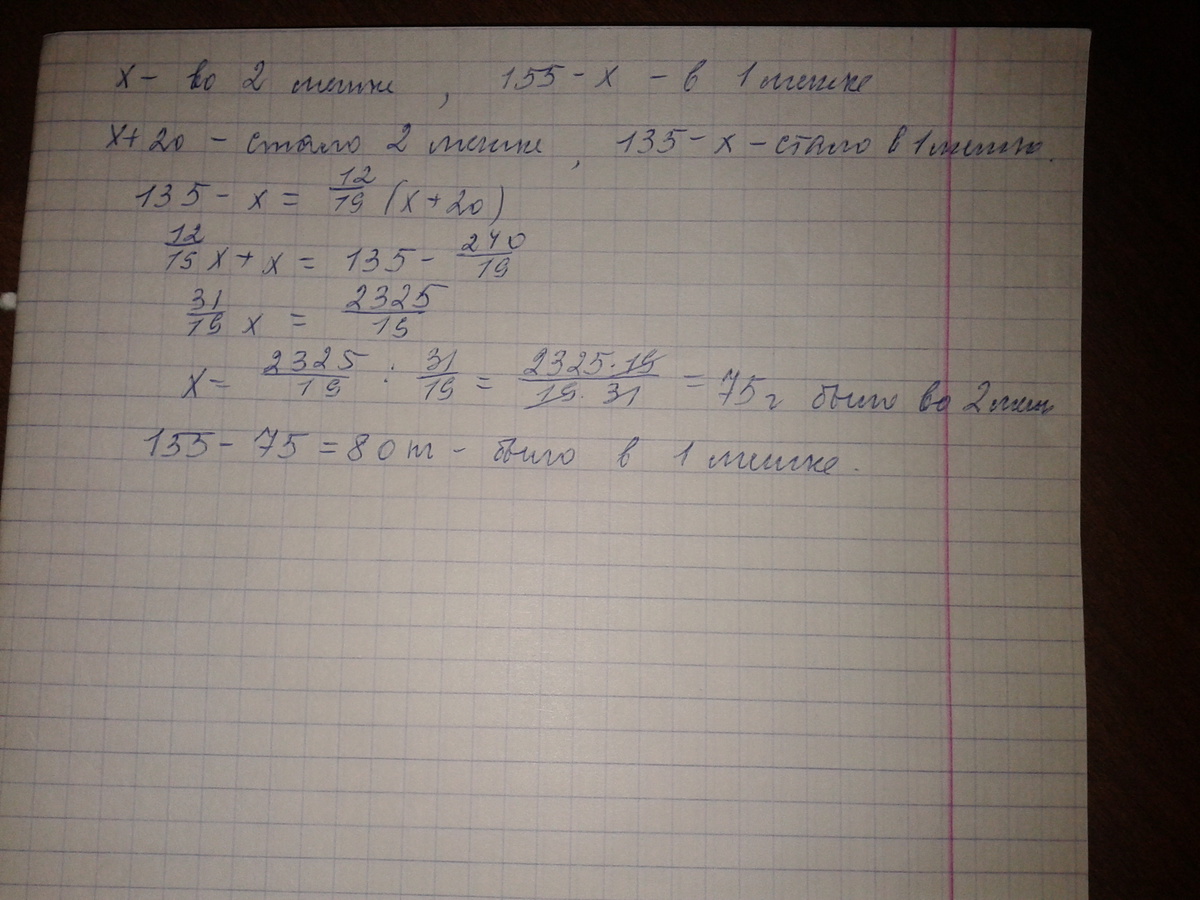 х - во 2 мешке, 155 - х - в 1 мешке
х + 20 - стало 2 мешке, 135 - х - стало в 1 мешке.
135 - х = 12/19 (х + 20)
12/19 х + х = 135 - 240/19
31/19 х = 2325/19
х = 2325/19 : 31/19 = 2325·19/19·31 = 75 г было во 2 меш
155 - 75 = 80 т - было в 1 мешке.